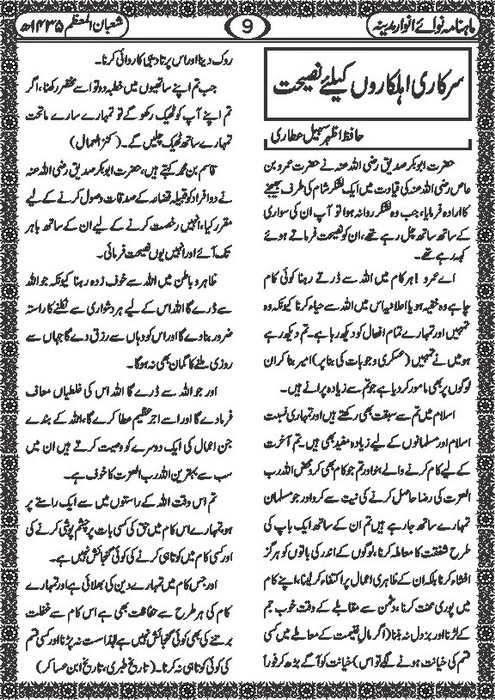 ماہنامہ نوائے انوار مدینہ
9
شعبان المعظم ۱۴۳۵ھ
سرکاری اہلکاروں کیلئے نصیحت
حافظ اظہر سہیل عطاری
حضرت ابوبکر صدیق رضی اللہ عنہ نے حضرت عمرو بن
عاص رضی اللہ عنہ کی قیادت میں ایک لشکر شام کی طرف بھیجنے
کا ارادہ فرمایا، جب وہ لشکر روانہ ہوا تو آپ ان کی سواری
کے ساتھ ساتھ چل رہے تھے، ان کو نصیحت فرماتے ہوئے
کہہ رہے تھے۔
اے عمرو! ہر کام میں اللہ سے ڈرتے رہنا کوئی کام
چاہے وہ خفیہ ہو یا اعلانیہ اس میں اللہ سے حیاء کرنا کیونکہ وہ
تمہیں اور تمہارے تمام افعال کو دیکھ رہا ہے۔ تم دیکھ رہے
ہو میں نے تمہیں (عسکری وجوہات کی بنا پر) امیر بنا کر ان
لوگوں پر بھی مامور کر دیا ہے جو تم سے زیادہ پرانے ہیں۔
اسلام میں تم سے سبقت بھی رکھتے ہیں اور تمہاری نسبت
اسلام اور مسلمانوں کے لیے زیادہ مفید بھی ہیں۔ تم آخرت
کے لیے کام کرنے والے بنو اور تم جو کام بھی کرو محض اللہ رب
العزت کی رضا حاصل کرنے کی نیت سے کرو اور جو مسلمان
تمہارے ساتھ جا رہے ہیں تم ان کے ساتھ ایک باپ کی
طرح شفقت کا معاملہ کرنا، لوگوں کے اندر کی باتوں کو ہرگز
افشا نہ کرنا بلکہ ان کے ظاہری اعمال پر اکتفاء کر لینا، اپنے کام
میں پوری محنت کرنا، دشمن سے مقابلے کے وقت خوب جم
کے لڑنا اور بزدل نہ بننا (اگر مال غنیمت کے معاملے میں کسی
قسم کی خیانت ہونے لگے تو اس) خیانت کو آگے بڑھ کر فوراً
روک دینا اور اس پر تادیبی کاروائی کرنا۔
جب تم اپنے ساتھیوں میں خطبہ دو تو اسے مختصر رکھنا، اگر
تم اپنے آپ کو ٹھیک رکھو گے تو تمہارے سارے ماتحت
تمہارے ساتھ ٹھیک چلیں گے۔ (کنز العمال)
قاسم بن محمد کہتے ہیں، حضرت ابوبکر صدیق رضی اللہ عنہ
نے دو افراد کو قبیلہ قضاعہ کے صدقات وصول کرنے کے لیے
مقرر کیا، انہیں رخصت کرنے کے لیے ان کے ساتھ باہر
تک آئے اور انہیں یوں نصیحت فرمائی۔
ظاہر و باطن میں اللہ سے خوف زدہ رہنا کیونکہ جو اللہ
سے ڈرے گا اللہ اس کے لیے ہر دشواری سے نکلنے کا راستہ
ضرور بنا دے گا اور اس کو وہاں سے رزق دے گا جہاں سے
روزی ملنے کا گمان بھی نہ ہو گا۔
اور جو اللہ سے ڈرے گا اللہ اس کی غلطیاں معاف
فرما دے گا اور اسے اجر عظیم عطا کرے گا، اللہ کے بندے
جن اعمال کی ایک دوسرے کو وصیت کرتے ہیں ان میں
سب سے بہترین اللہ رب العزت کا خوف ہے۔
تم اس وقت اللہ کے راستوں میں سے ایک راستے پر
ہو، تمہارے اس کام میں حق کی کسی بات پر چشم پوشی کرنے کی
اور کسی کام میں کوتاہی کرنے کی کوئی گنجائش نہیں ہے۔
اور جس کام میں تمہارے دین کی بھلائی ہے اور تمہارے
کام کی ہر طرح سے حفاظت بھی ہے اس کام سے غفلت
برتنے کی بھی کوئی گنجائش نہیں ہے لہذا سست نہ پڑنا اور کسی قسم
کی کوئی کوتاہی نہ کرنا۔ (تاریخ طبری، تاریخ ابن عساکر)